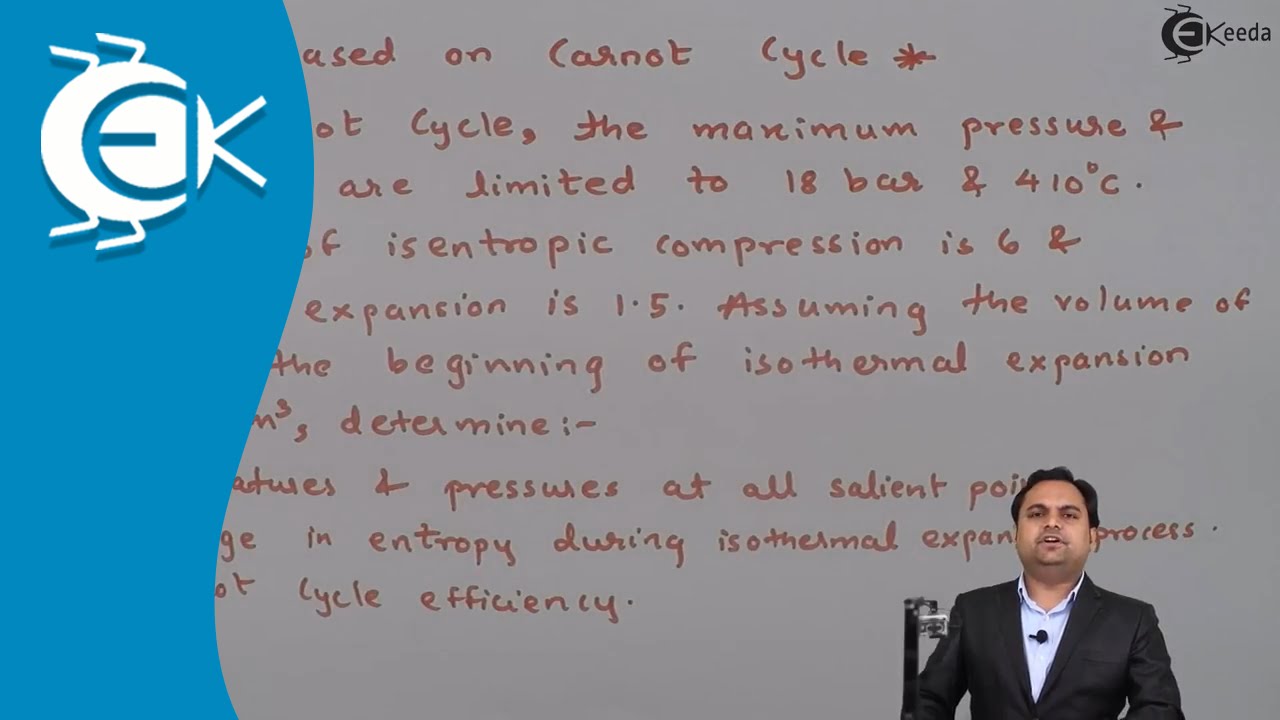 EK
EKeeda
ased on Carnot Cycle *
ot Cycle, the maximum pressure &
are limited to 18 bar & 410°C.
of isentropic compression is 6 &
expansion is 1.5. Assuming the volume of
the beginning of isothermal expansion
m³, determine:-
atures & pressures at all salient poin
ge in entropy during isothermal expan process.
ot Cycle efficiency.